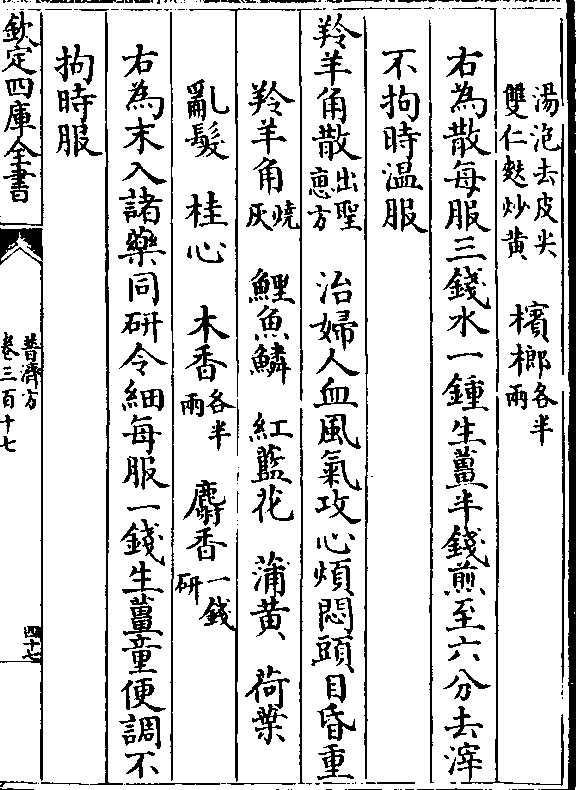 湯泡去皮尖
雙仁麩炒黃
檳榔各半兩
右為散每服三錢水一鍾生薑半錢煎至六分去滓
不拘時温服
羚羊角散出聖惠方 治婦人血風氣攻心煩悶頭目昏重
羚羊角燒灰 鯉魚鱗 紅藍花 蒲黃 荷葉
亂髮 桂心 木香各半兩 麝香一錢研
右為末入諸藥同研令細每服一錢生薑童便調不
拘時服
欽定四庫全書
普濟方
卷三百十七
四十七